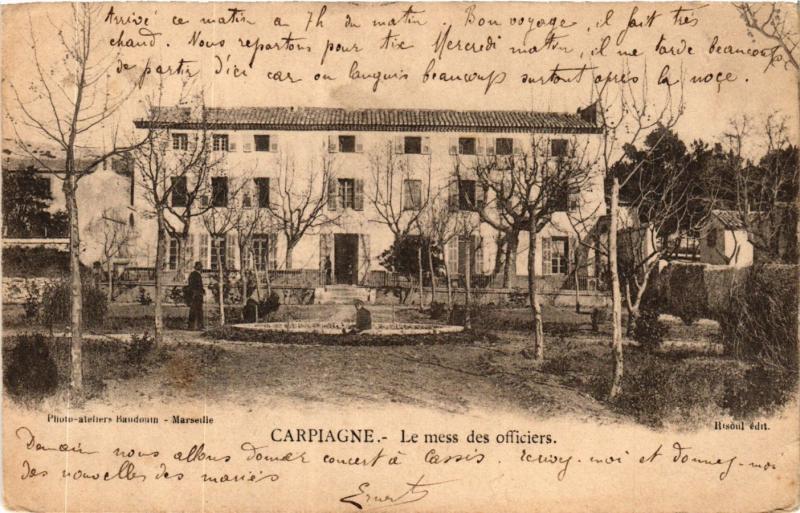 Arrivé ce matin a 7h du matin. Bon voyage, il fait très
chaud. Nous repartons pour Aix Mercredi matin, il me tarde beaucoup
de partir d'ici car on languis beaucoup surtout après la noce.
Photo-ateliers Baudouin - Marseille
CARPIAGNE.- Le mess des officiers.
Risoul édit.
Demain nous allons donner concert à Cassis. Ecrivez-moi et donnez-moi
des nouvelles des mariés
Ernest